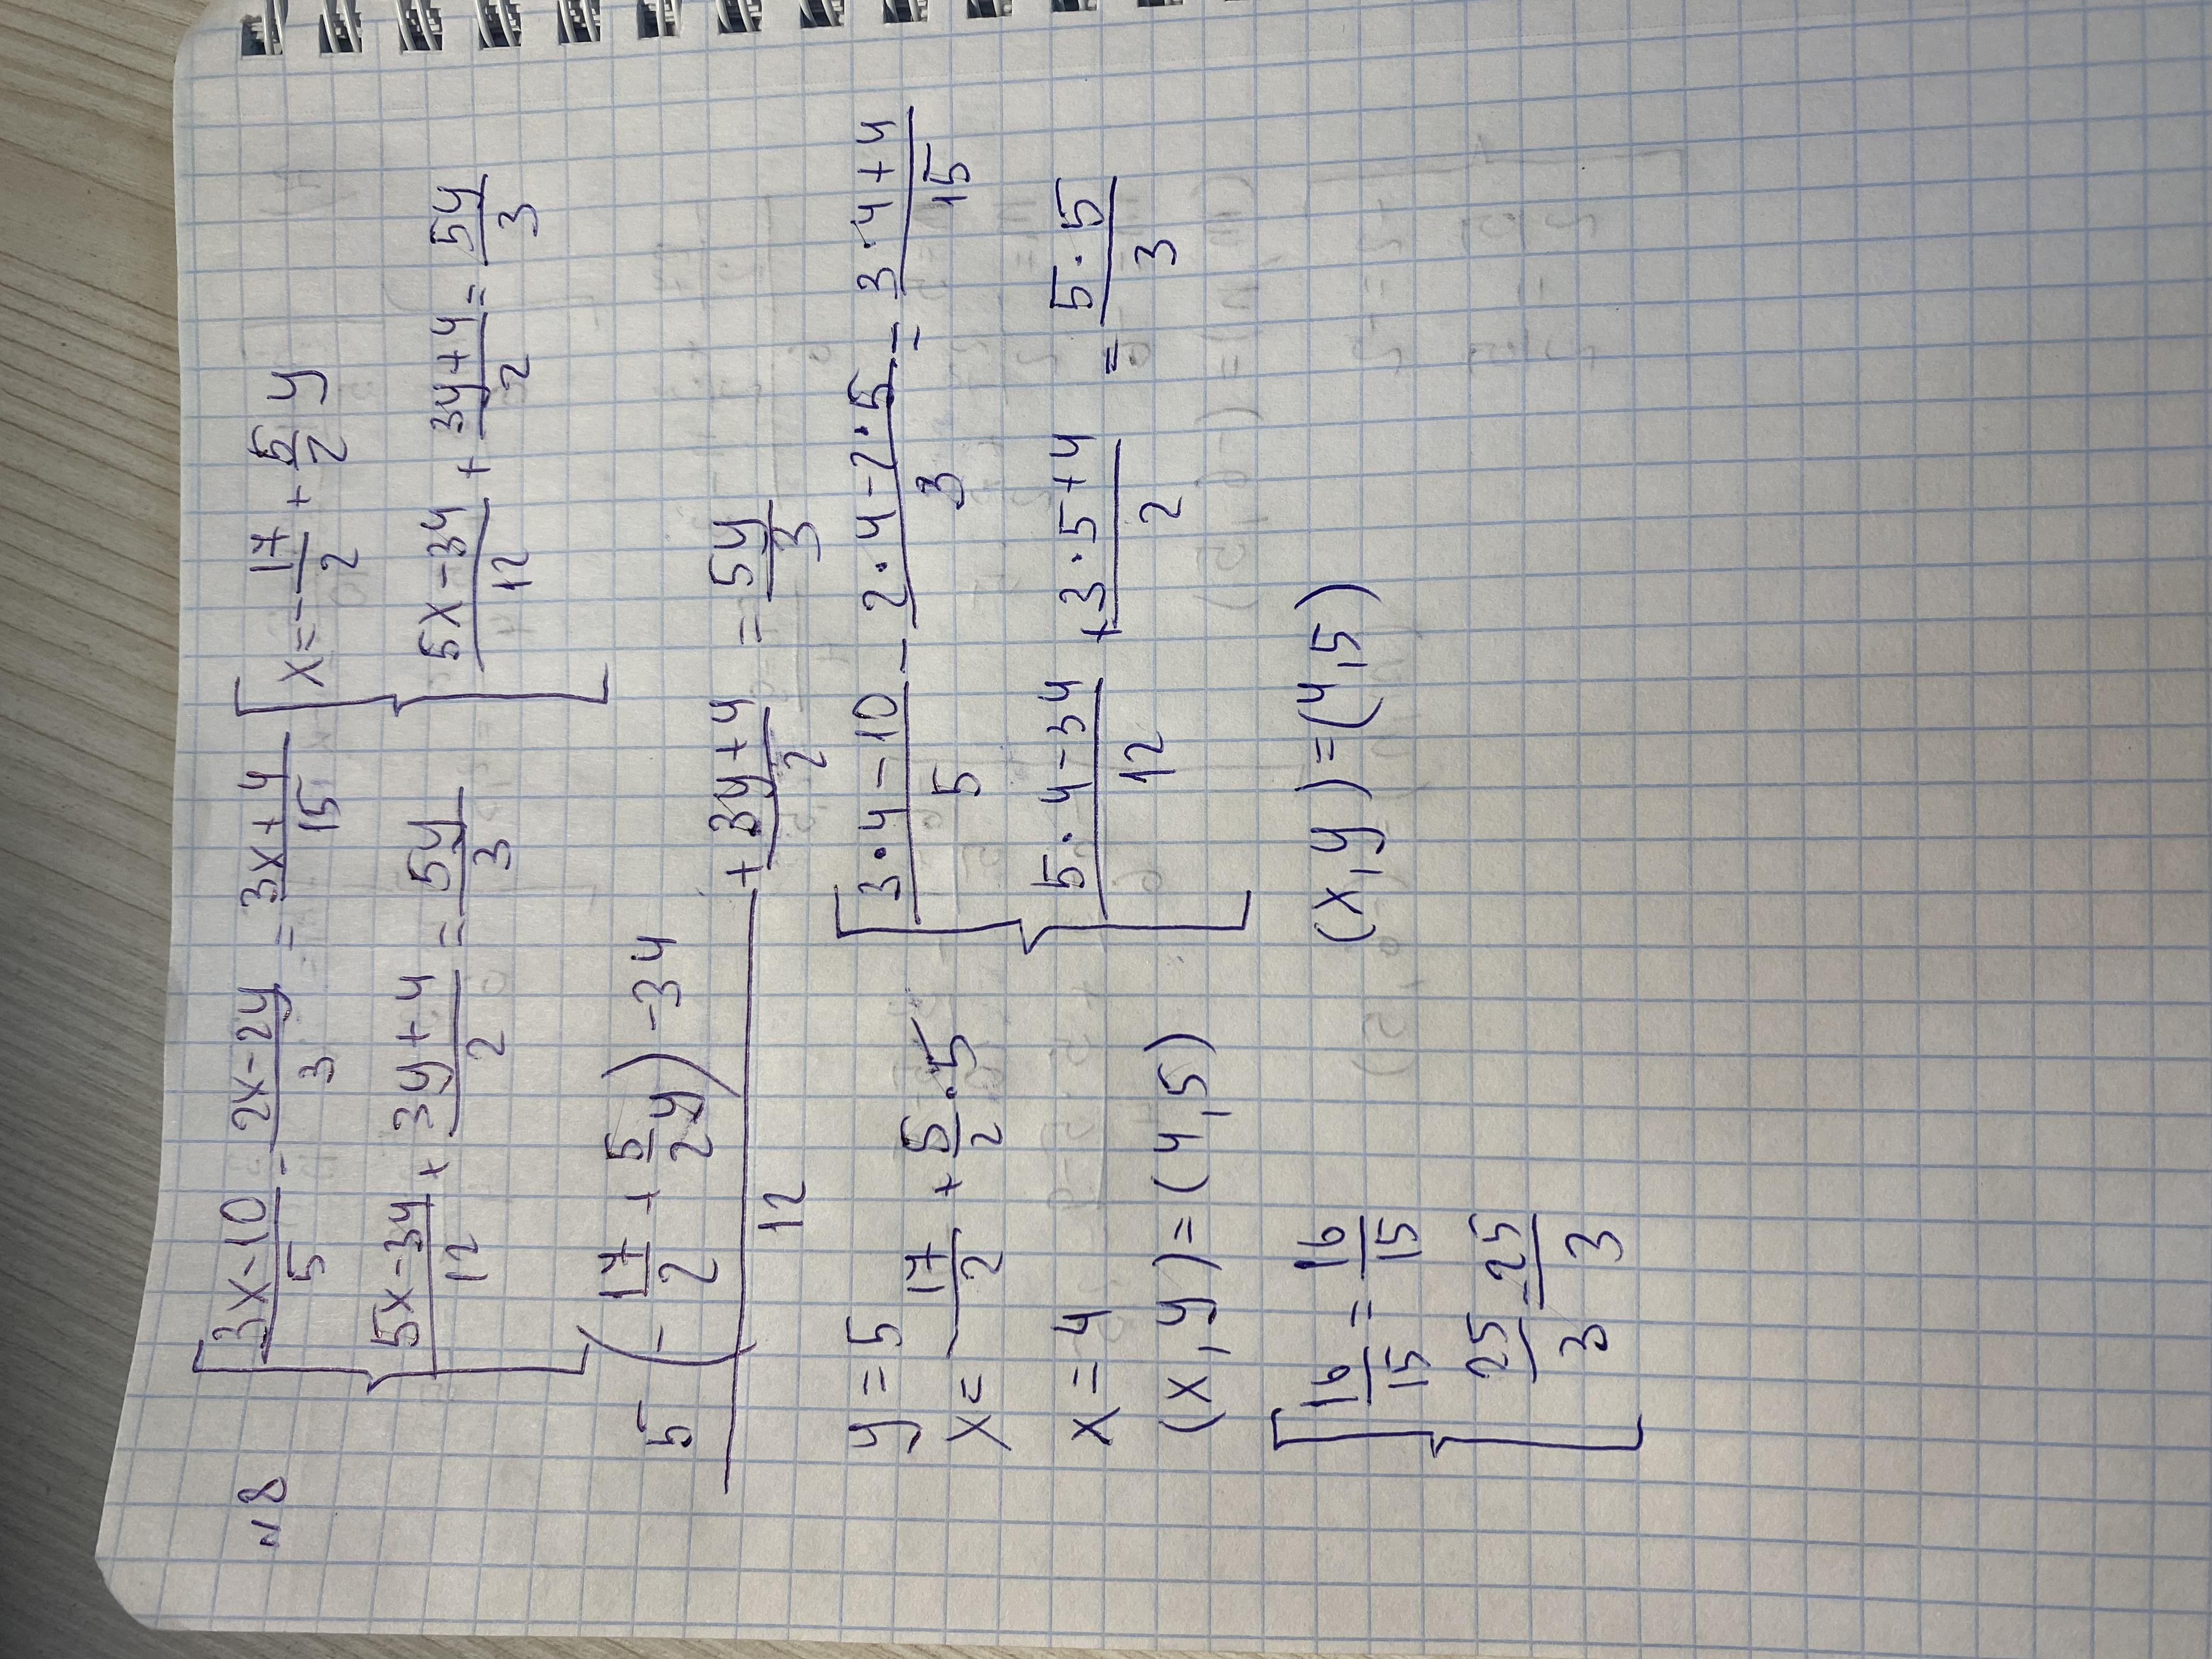 N8
(3x-10)/5 - (2x-2y)/3 = (3x+4)/15
(5x-34)/12 + (3y+4)/2 = 5y/3
x = -17/2 + 5/2 y
(5x-34)/12 + (3y+4)/2 = 5y/3
(5(-17/2 + 5/2 y) -34)/12 + (3y+4)/2 = 5y/3
y=5
x= -17/2 + 5/2 · 5
x=4
(x,y)=(4,5)
(3·4-10)/5 - (2·4-2·5)/3 = (3·4+4)/15
(5·4-34)/12 + (3·5+4)/2 = 5·5/3
16/15 = 16/15
25/3 - 25/3
(x,y)=(4,5)